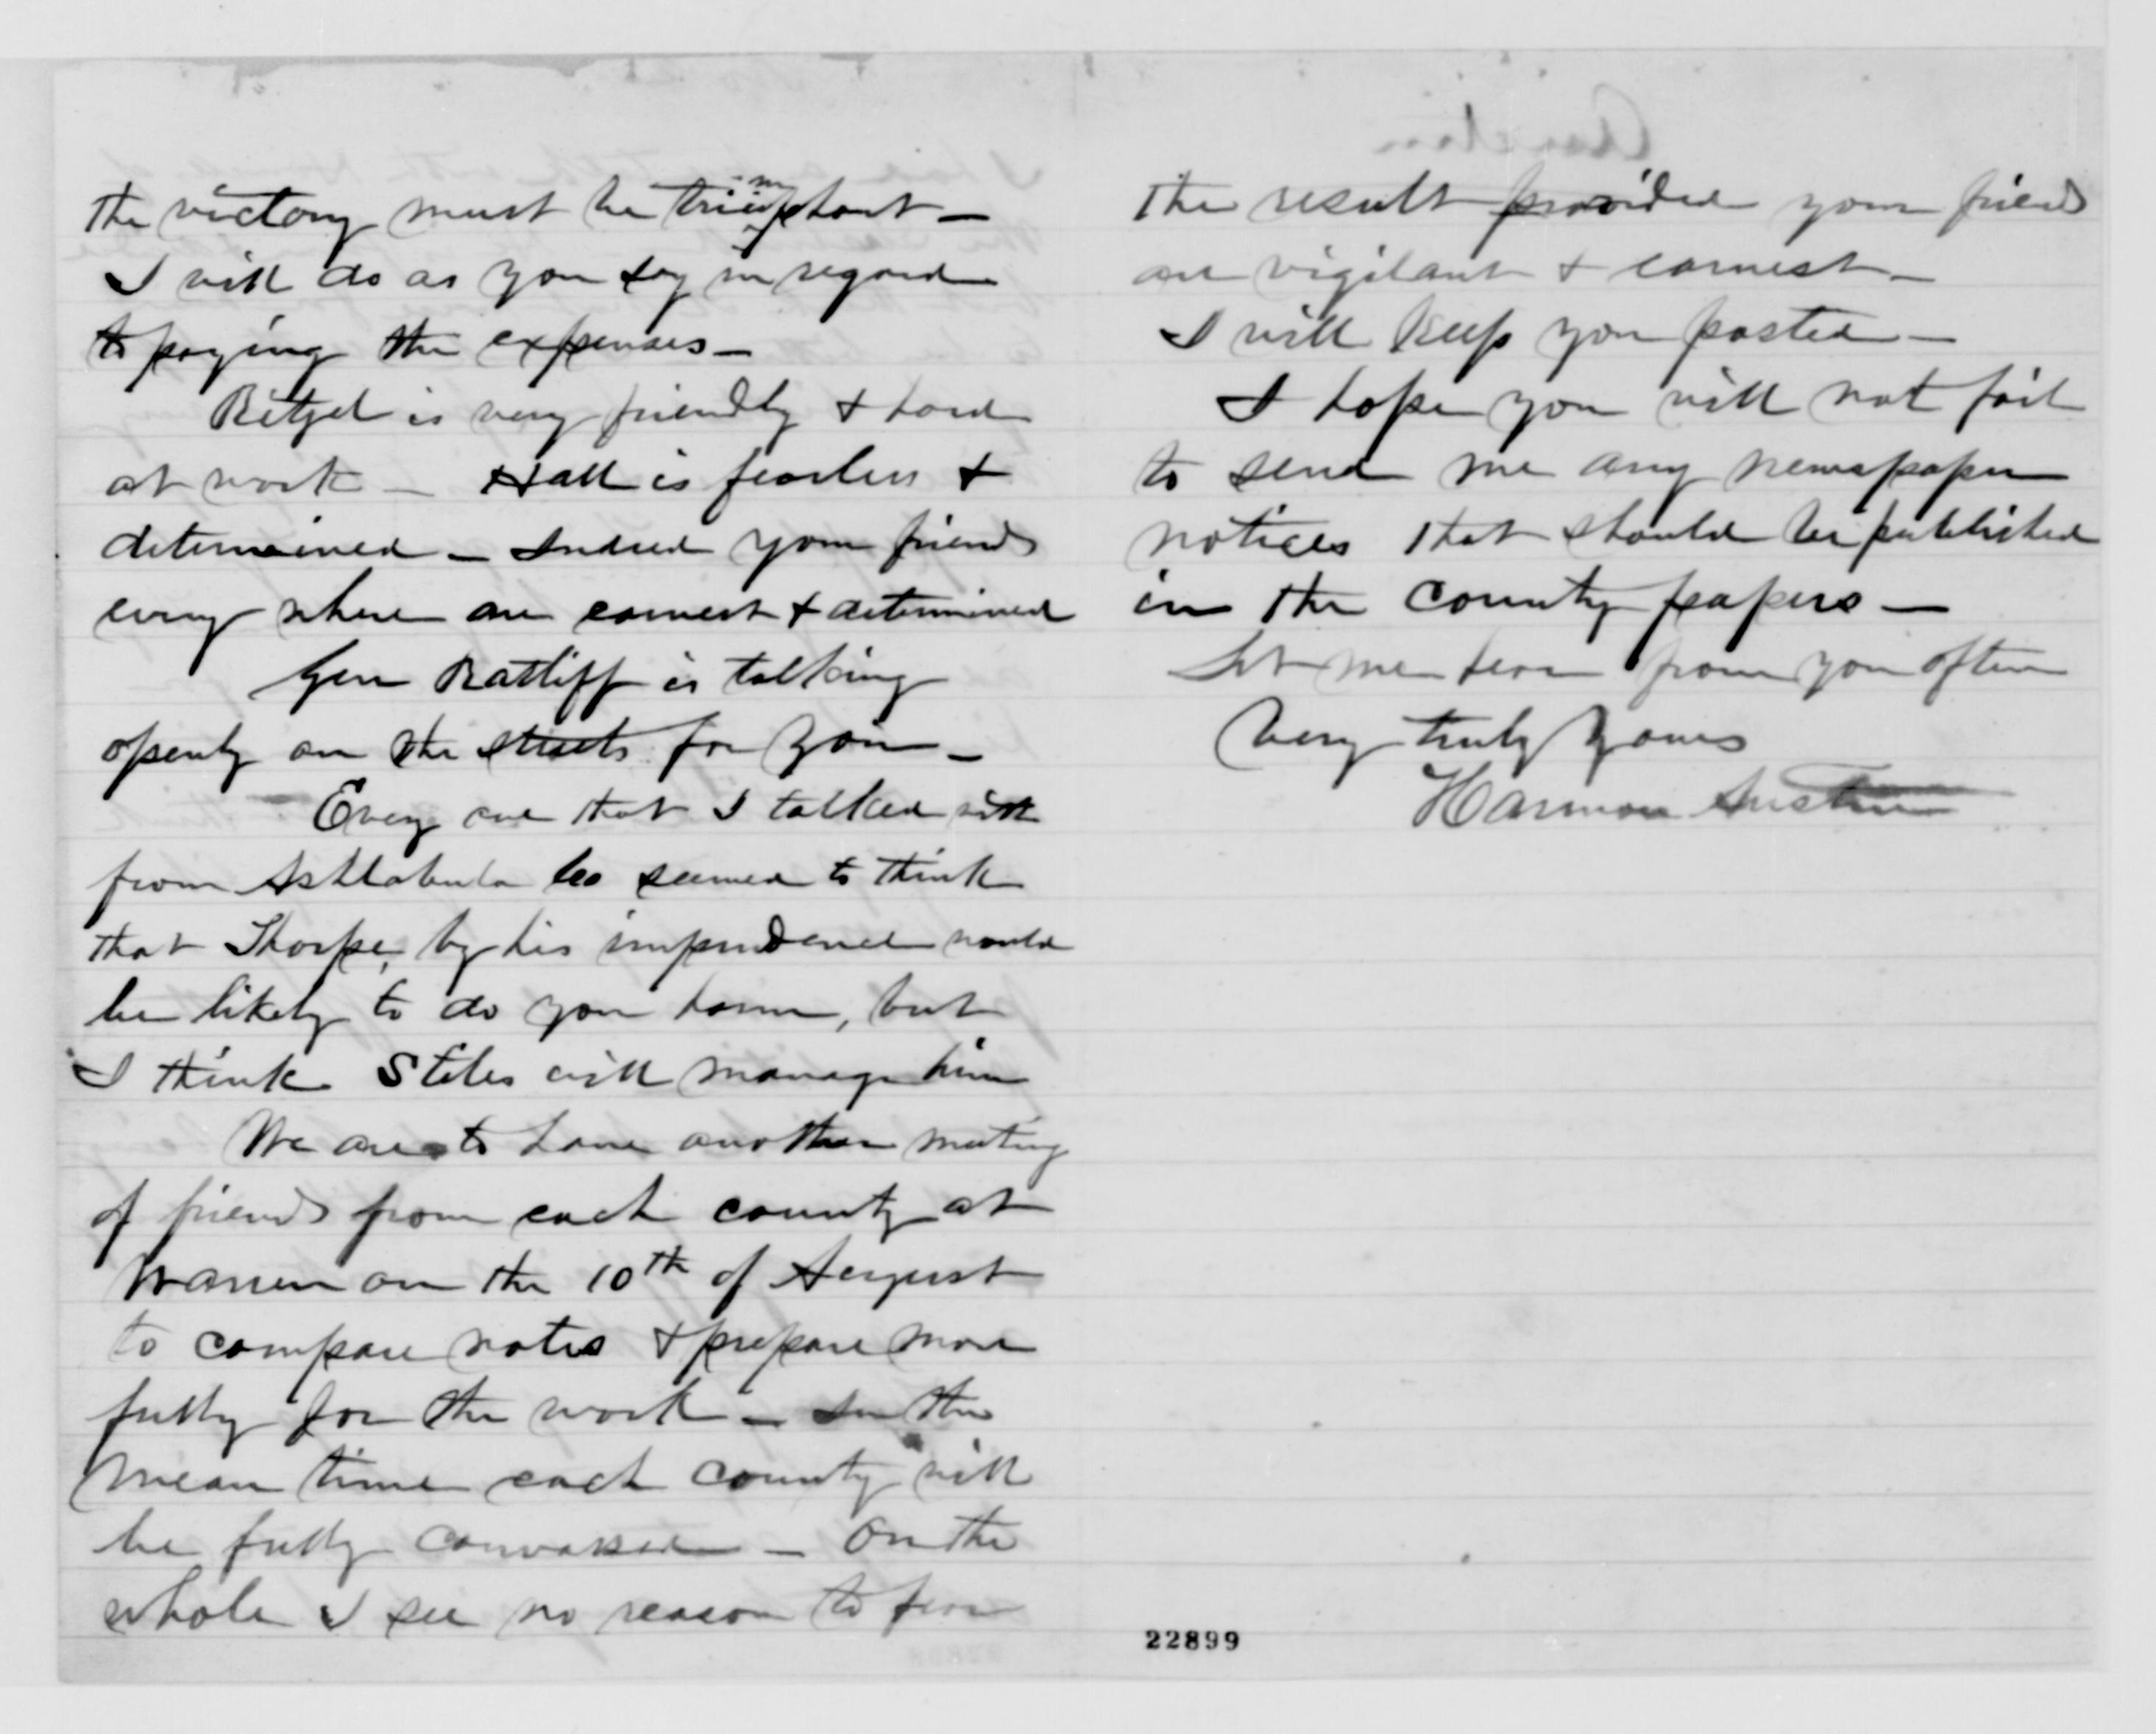 the victory must be triumphant —
I will do as you say in regard
to paying the expenses —
Ritzel is very friendly & hard
at work — Hall is fearless &
determined — Indeed your friends
every where are earnest & determined
Gen Ratliff is talking
openly on the streets for you —
Every one that I talked with
from Ashtabula Co seemed to think
that Thorpe, by his imprudence would
be likely to do you harm, but
I think Stiles will manage him
We are to have another meeting
of friends from each county at
Warren on the 10th of August
to compare notes & prepare more
fully for the work — In the
mean time each county will
be fully canvassed — On the
whole I see no reason to fear
the result provided your friends
are vigilant & earnest —
I will keep you posted —
I hope you will not fail
to send me any newspaper
notices that should be published
in the county papers —
Let me hear from you often
Very truly yours
Harmon Austin
22899